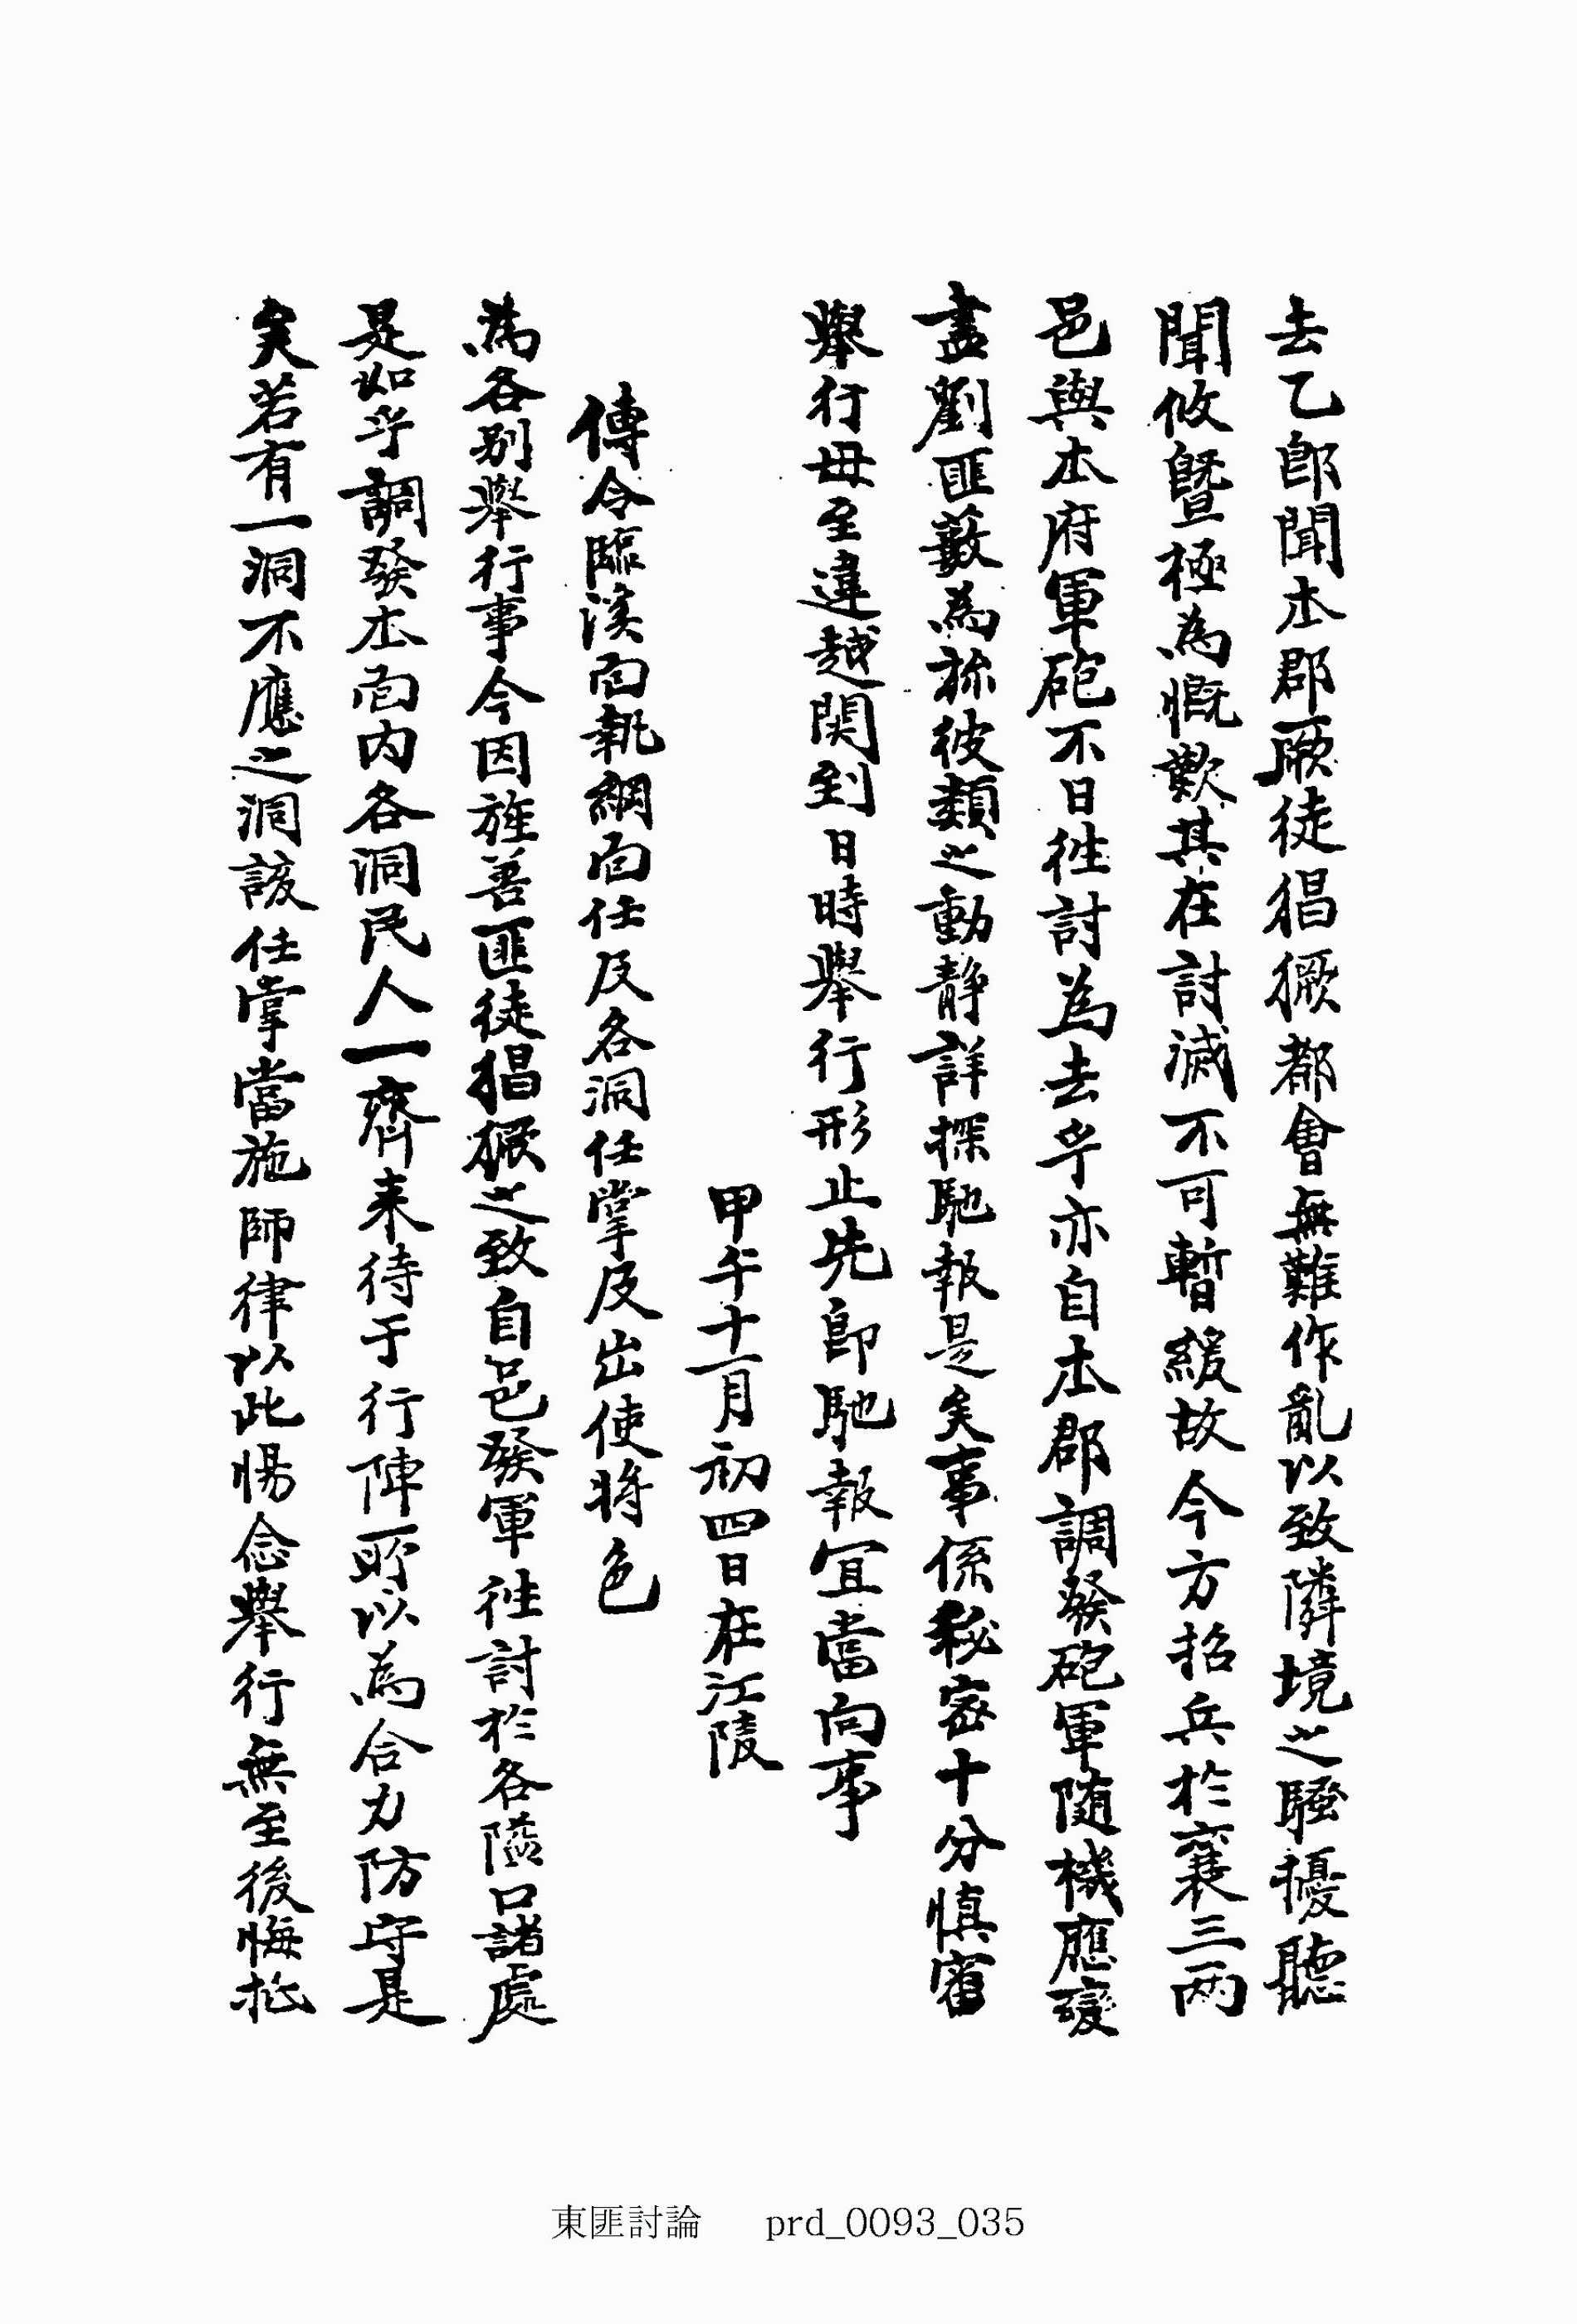 去乙郎聞本郡厥徒猖獗都會無難作亂以致隣境之騷擾聽
聞攸曁極為慨歎其在討滅不可暫緩故今方招兵於襄三兩
邑與本府軍砲不日往討為去乎亦自本郡調發砲軍随機應變
盡劉匪藪為旀彼類之動靜詳探馳報是矣事係秘密十分愼審
擧行毋至違越関到日時擧行形止先卽馳報宜當向事
甲午十一月初四日在江陵
傳令臨溪面執綱面任及各洞任掌及出使將色
為各别擧行事今因旌善匪徒猖獗之致自邑發軍往討於各隘口諸處
是如乎調發本面内各洞民人一齊来待于行陣所以為合力防守是
矣若有一洞不應之洞該任掌當施師律以此惕念擧行無至後悔於
東匪討論 prd_0093_035